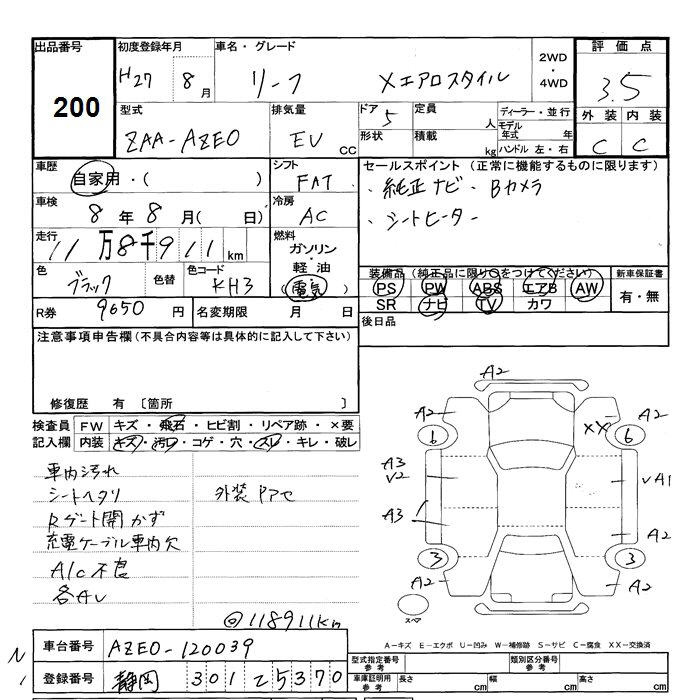 出品番号
200
初度登録年月
H27 8月
車名・グレード
リーフ Xエアロスタイル
2WD
・
4WD
評価点
3.5
型式
ZAA-AZE0
排気量
EV cc
ドア 5
形状
定員 人
積載 kg
ディーラー・並行
モデル年式 年
ハンドル 左・右
外装 内装
C C
車歴
自家用・( )
シフト
FAT
セールスポイント (正常に機能するものに限ります)
・純正ナビ・Bカメラ
・シートヒーター
車検
8年8月( 日)
冷房
AC
走行
11万8千911km
燃料
ガソリン
・
軽油
電気
色
ブラック
色替
色コード
KH3
装備品(純正品に限り○をつけてください)
PS PW ABS エアB AW
SR ナビ TV カワ
新車保証書
有・無
R券 9650円
名変期限 月 日
後日品
注意事項申告欄(不具合内容等は具体的に記入して下さい)
修復歴 有 〔箇所 〕
検査員記入欄
FW キズ・飛石・ヒビ割・リペア跡・×要
内装 キズ・汚レ・コゲ・穴・スレ・キレ・破レ
車内汚れ
シートヘタリ
外装ドアセ
Rゲート開かず
充電ケーブル車内欠
A/C不良
各AU
◎118911km
A2
A2
A2
XX
6
6
A3
V2
VA1
A3
A2
3
3
A2
A2
スペア
A-キズ E-エクボ U-凹み W-補修跡 S-サビ C-腐食 XX-交換済
車台番号 AZE0-120039
登録番号 静岡 301 そ 5370
型式指定番号
参考
類別区分番号
参考
車庫証明用
参考
長さ cm
幅 cm
高さ cm